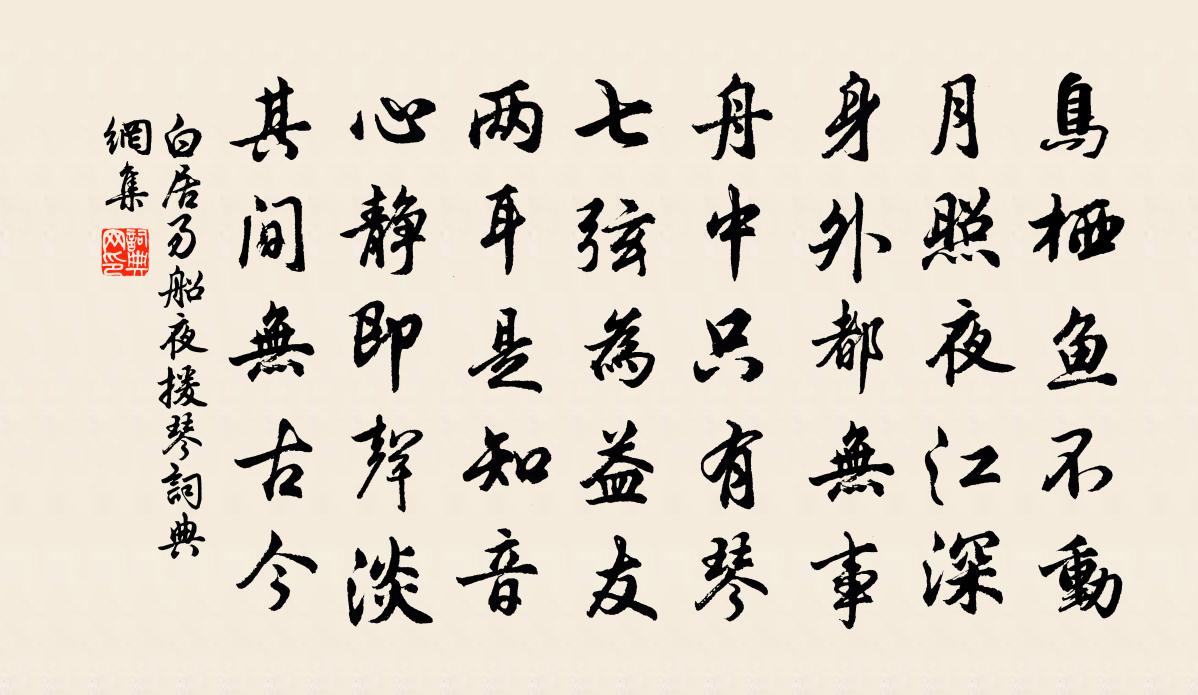 鳥栖魚不動
月照夜江深
身外都無事
舟中只有琴
七弦為益友
两耳是知音
心静即聲淡
其間無古今
白居易船夜援琴詞典
網集
詞典
网印